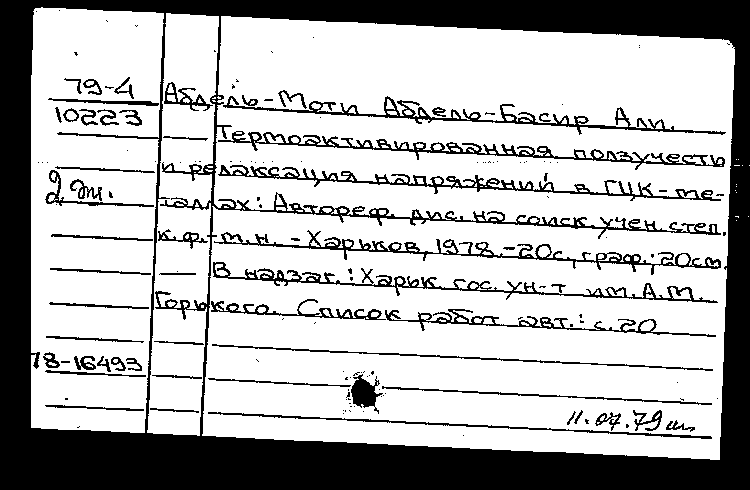 79-4
10223
Абдель-Моти Абдель-Басир Али.
Термоактивированная ползучесть
и релаксация напряжений в ГЦК-ме-
таллах: Автореф. дис. на соиск. учен. степ.
к.ф.-м.н. - Харьков, 1978. - 20с., граф.; 20см.
В надзаг.: Харьк. гос. ун-т им. А.М.
Горького. Список работ авт.: с. 20
78-16493
11.04.79